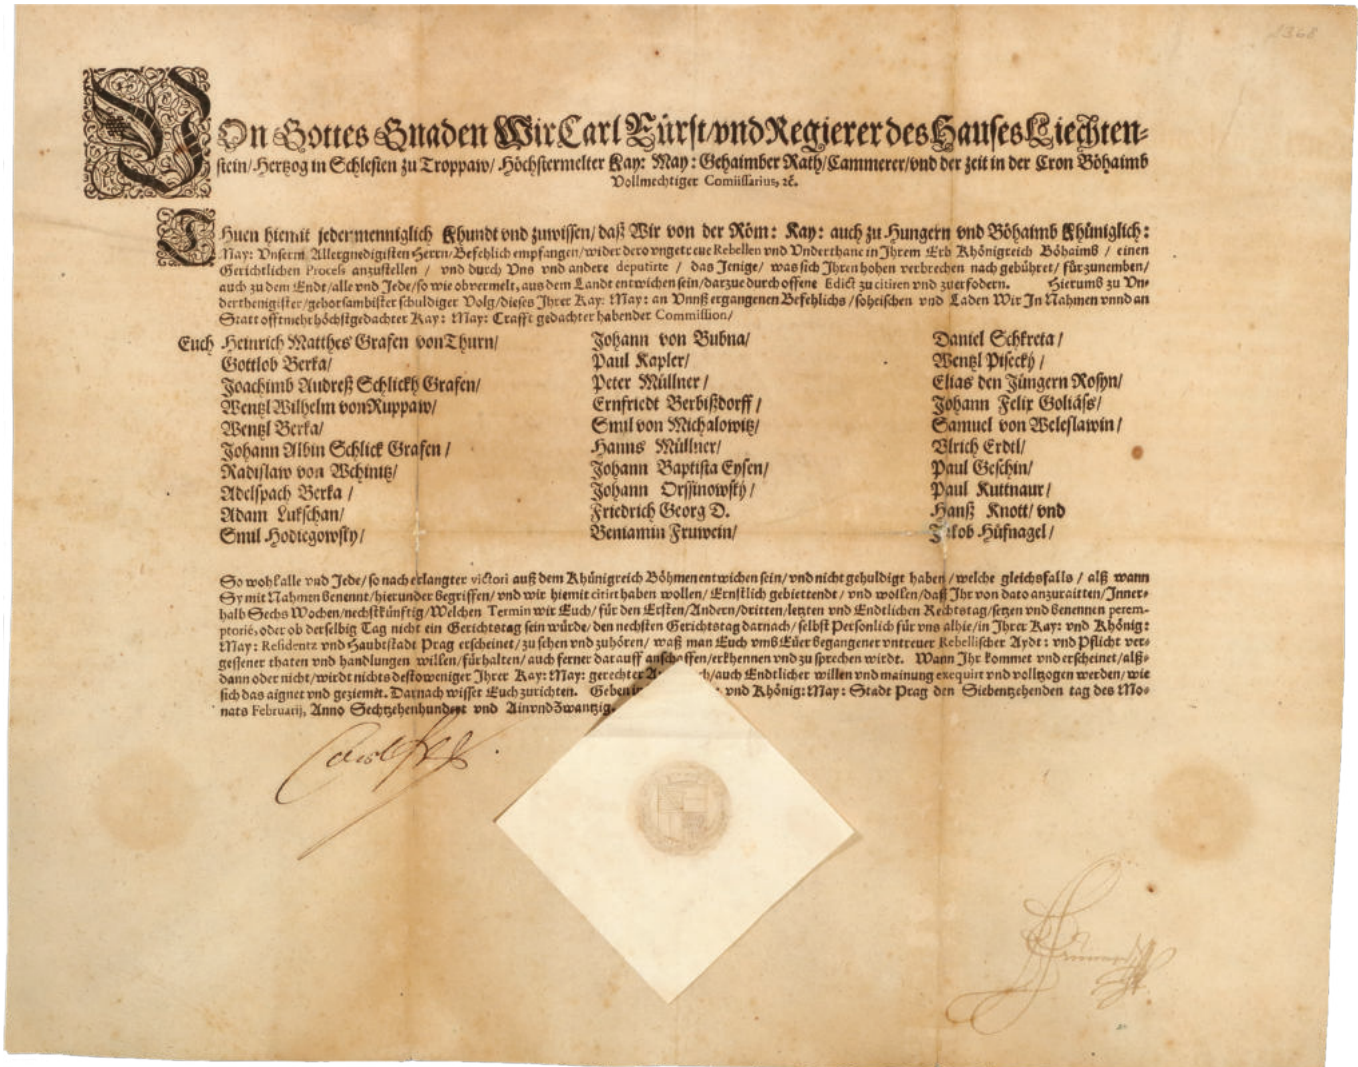 VOn Gottes Gnaden Wir Carl Fürst/vnd Regierer des Hauses Liechten-
stein/Hertzog in Schlesien zu Troppaw/Höchstermelter Kay: May: Gehaimber Rath/Cammerer/vnd der zeit in der Cron Böhaimb
Vollmechtiger Comiissarius, ꝛc.
THuen hiemit jedermenniglich Khundt vnd zuwissen/daß Wir von der Röm: Kay: auch zu Hungern vnd Böhaimb Khüniglich:
May: Vnserm Allergnedigisten Herrn/Befehlich empfangen/wider dero vngetreue Rebellen vnd Vnderthane in Ihrem Erb Khönigreich Böhaimb / einen
Gerichtlichen Process anzustellen / vnd durch Vns vnd andere deputirte / das Jenige/was sich Ihren hohen verbrechen nach gebühret/ fürzunemben/
auch zu dem Endt/alle vnd Jede/so wie obvermelt,aus dem Landt entwichen sein/darzue durch offene Edict zu citiren vnd zuerfodern. Hierumb zu Vn-
derthenigister/gehorsambister schuldiger Volg/dieses Ihrer Kay: May: an Vnnß ergangenen Befehlichs/so heischen vnd Laden Wir In Nahmen vnnd an
Statt offtmehr höchstgedachter Kay: May: Crafft gedachter habender Commission/
Euch Heinrich Matthes Grafen von Thurn/
Gottlob Berka/
Joachimb Andreß Schlickh Grafen/
Wentzl Wilhelm von Ruppaw/
Wentzl Berka/
Johann Albin Schlick Grafen/
Radislaw von Wchinitz/
Adelspach Berka /
Adam Lukschan/
Smil Hodiegowsky/
Johann von Bubna/
Paul Kapler/
Peter Müllner/
Ernfriedt Berbißdorff/
Smil von Michalowitz/
Hanns Müllner/
Johann Baptista Eysen/
Johann Orssinowsky/
Friedrich Georg D.
Beniamin Fruwein/
Daniel Schkreta/
Wentzl Pisecky/
Elias den Jüngern Rosyn/
Johann Felix Goliáss/
Samuel von Weleslawin/
Vlrich Erdtl/
Paul Geschin/
Paul Kuttnaur/
Hanß Knott/vnd
Jakob Hüfnagel/
So wohl alle vnd Jede/so nach erlangter victori auß dem Khünigreich Böhmen entwichen sein/vnd nicht gehuldigt haben/welche gleichsfalls / alß wann
Sy mit Nahmen benennt/hierunder begriffen/vnd wir hiemit citirt haben wollen/Ernstlich gebiettendt/vnd wollen/daß Ihr von dato anzuraitten/Inner-
halb Sechs Wochen/nechstkünftig/Welchen Termin wir Euch/für den Ersten/Andern/dritten/letzten vnd Endtlichen Rechtstag/setzen vnd benennen perem-
ptoriè,oder ob derselbig Tag nicht ein Gerichtstag sein würde/den nechsten Gerichtstag darnach/selbst Personlich für vns alhie/in Ihrer Kay: vnd Khönig:
May: Residentz vnd Haubtstadt Prag erscheinet/zu sehen vnd zuhören/ waß man Euch vmb Eüer begangener vntreuer Rebellischer Aydt: vnd Pflicht ver-
gessener thaten vnd handlungen willen/fürhalten/auch ferner darauff anschaffen/erkhennen vnd zu sprechen wirdt. Wann Ihr kommet vnd erscheinet/alß-
dann oder nicht/wirdt nichts destoweniger Ihrer Kay: May: gerechter /auch Endtlicher willen vnd mainung exequirt vnd volltzogen werden/wie
sich das aignet vnd geziemt. Darnach wisset Euch zurichten. Geben in vnd Khönig:May: Stadt Prag den Siebentzehenden tag des Mo-
nats Februarij, Anno Sechtzehenhundert vnd Ain vnd Zwantzig.